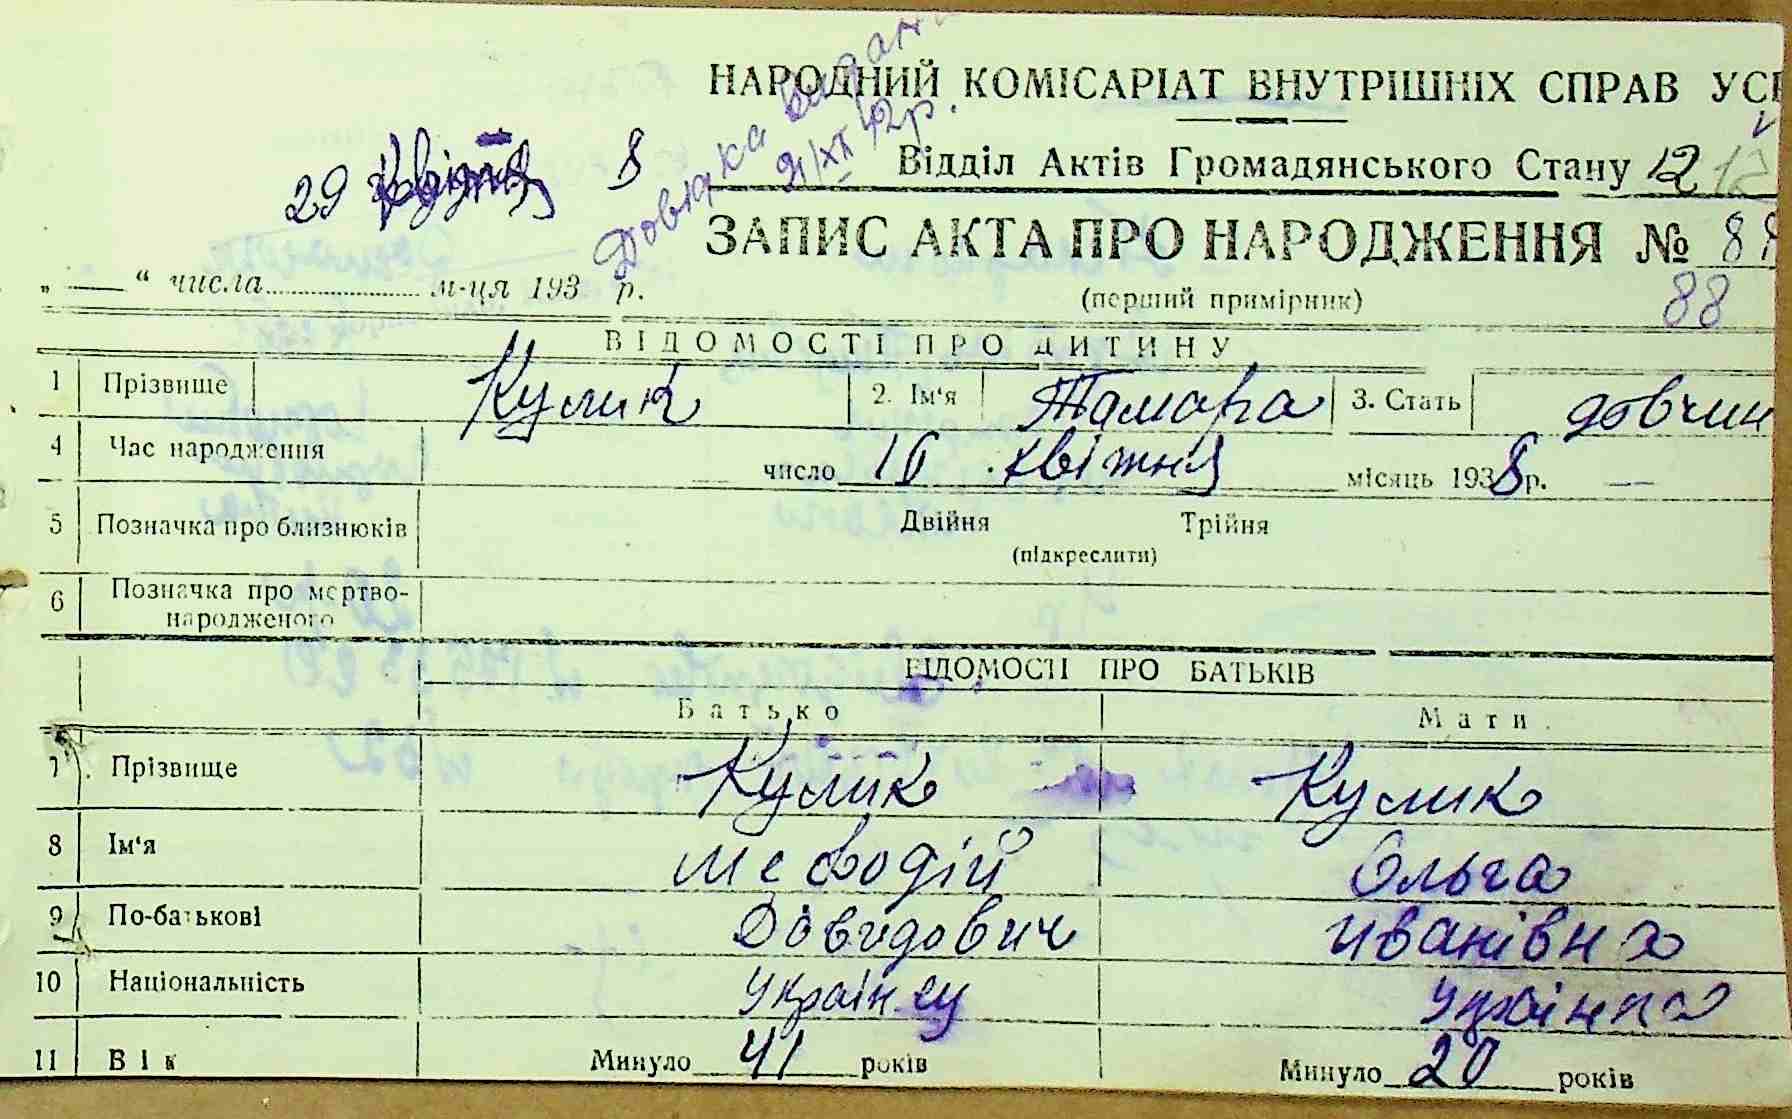 Довідка видана
21/XII 42р.
НАРОДНИЙ КОМІСАРІАТ ВНУТРІШНІХ СПРАВ УС
Відділ Актів Громадянського Стану 12
29 квітня 8
ЗАПИС АКТА ПРО НАРОДЖЕННЯ №
„ “ числа м-ця 193 р.
(перший примірник) 88
ВІДОМОСТІ ПРО ДИТИНУ
1 Прізвище Кулик 2. Ім'я Тамара 3. Стать довчин
4 Час народження число 16 квітня місяць 1938 р. —
5 Позначка про близнюків Двійня Трійня
(підкреслити)
6 Позначка про мертво-
народженого
ВІДОМОСТІ ПРО БАТЬКІВ
Батько Мати
7 Прізвище Кулик Кулик
8 Ім'я Меводій Ольга
9 По-батькові Довидович Иванівна
10 Національність Українец Українка
11 Вік Минуло 41 років Минуло 20 років